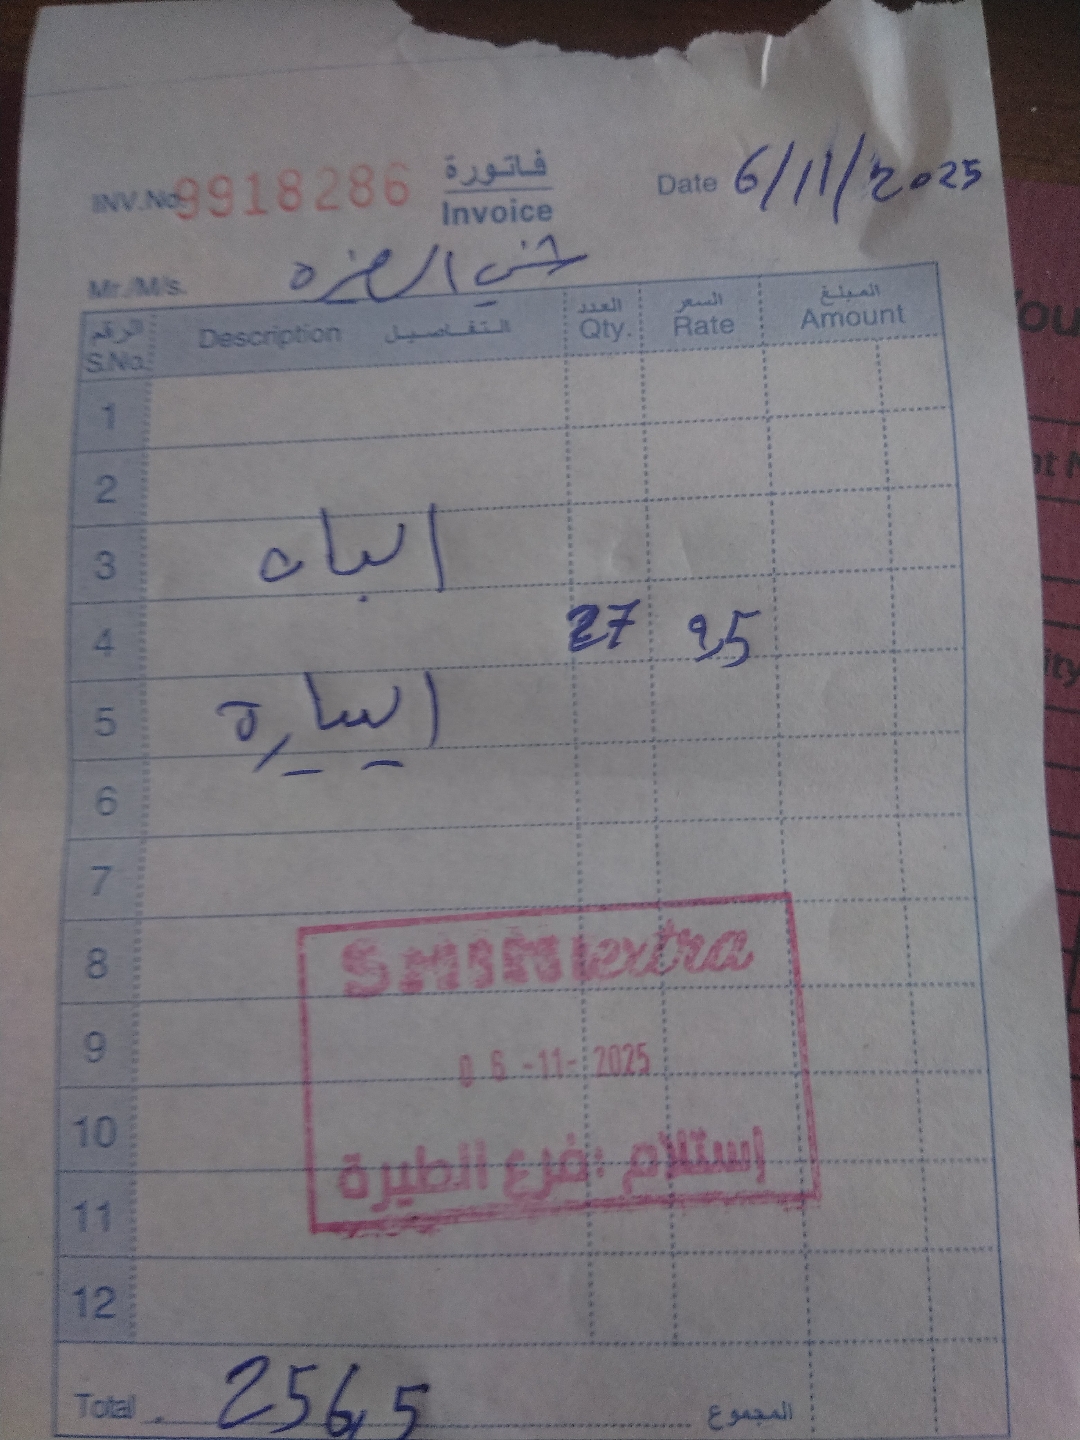 فاتورة
INV.No 9918286 Invoice Date 6/11/2025
Mr./M/s.
الرقم التفاصيل العدد السعر المبلغ
S.No. Description Qty. Rate Amount
1
2
3
4 27 9,5
5
6
7
8
9
10
11
12
extra
06-11-2025
إستلام : فرع الطيرة
Total 256,5 المجموع